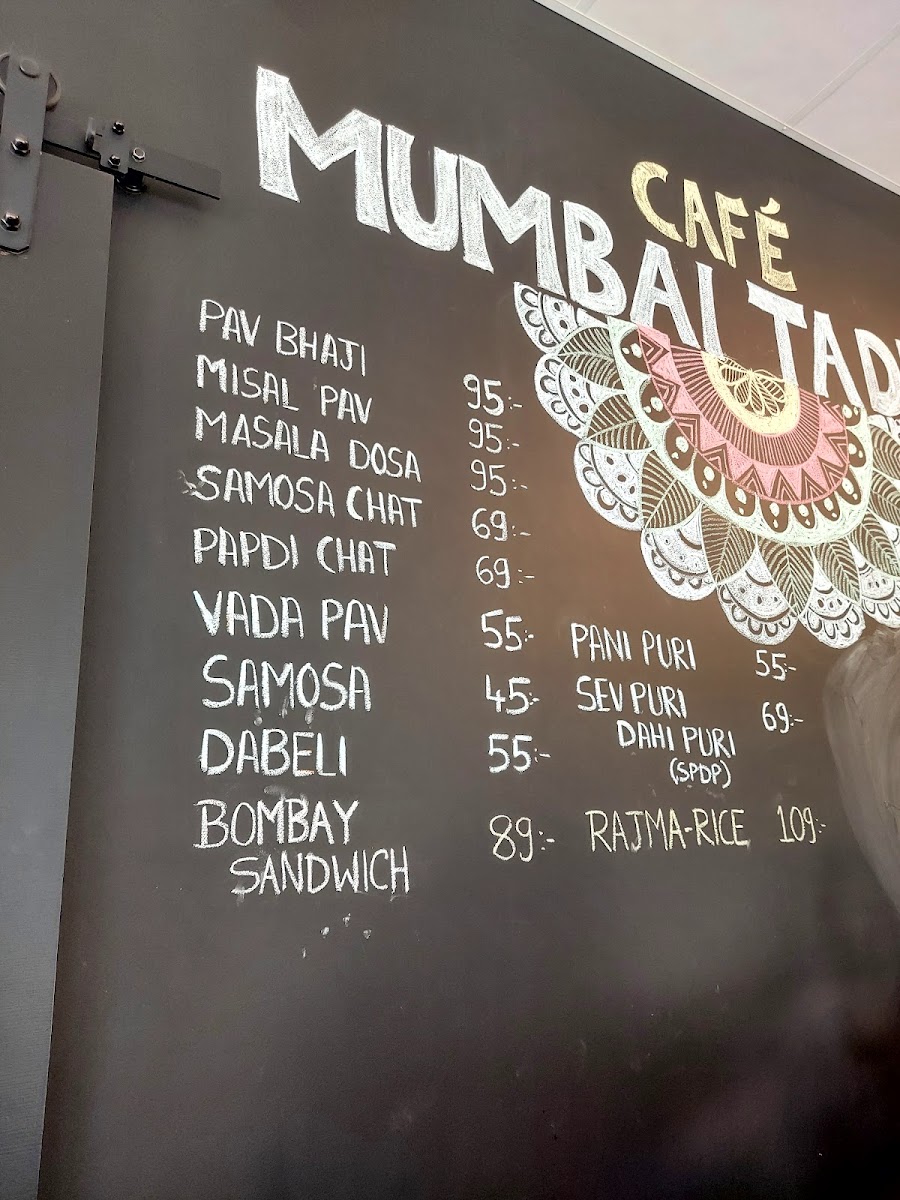 CAFÉ
MUMBAI
PAV BHAJI 95:-
MISAL PAV 95:-
MASALA DOSA 95:-
SAMOSA CHAT 69:-
PAPDI CHAT 69:-
VADA PAV 55:-
SAMOSA 45:-
DABELI 55:-
BOMBAY
SANDWICH 89:-
PANI PURI 55:-
SEV PURI 69:-
DAHI PURI
(SPDP)
RAJMA-RICE 109:-